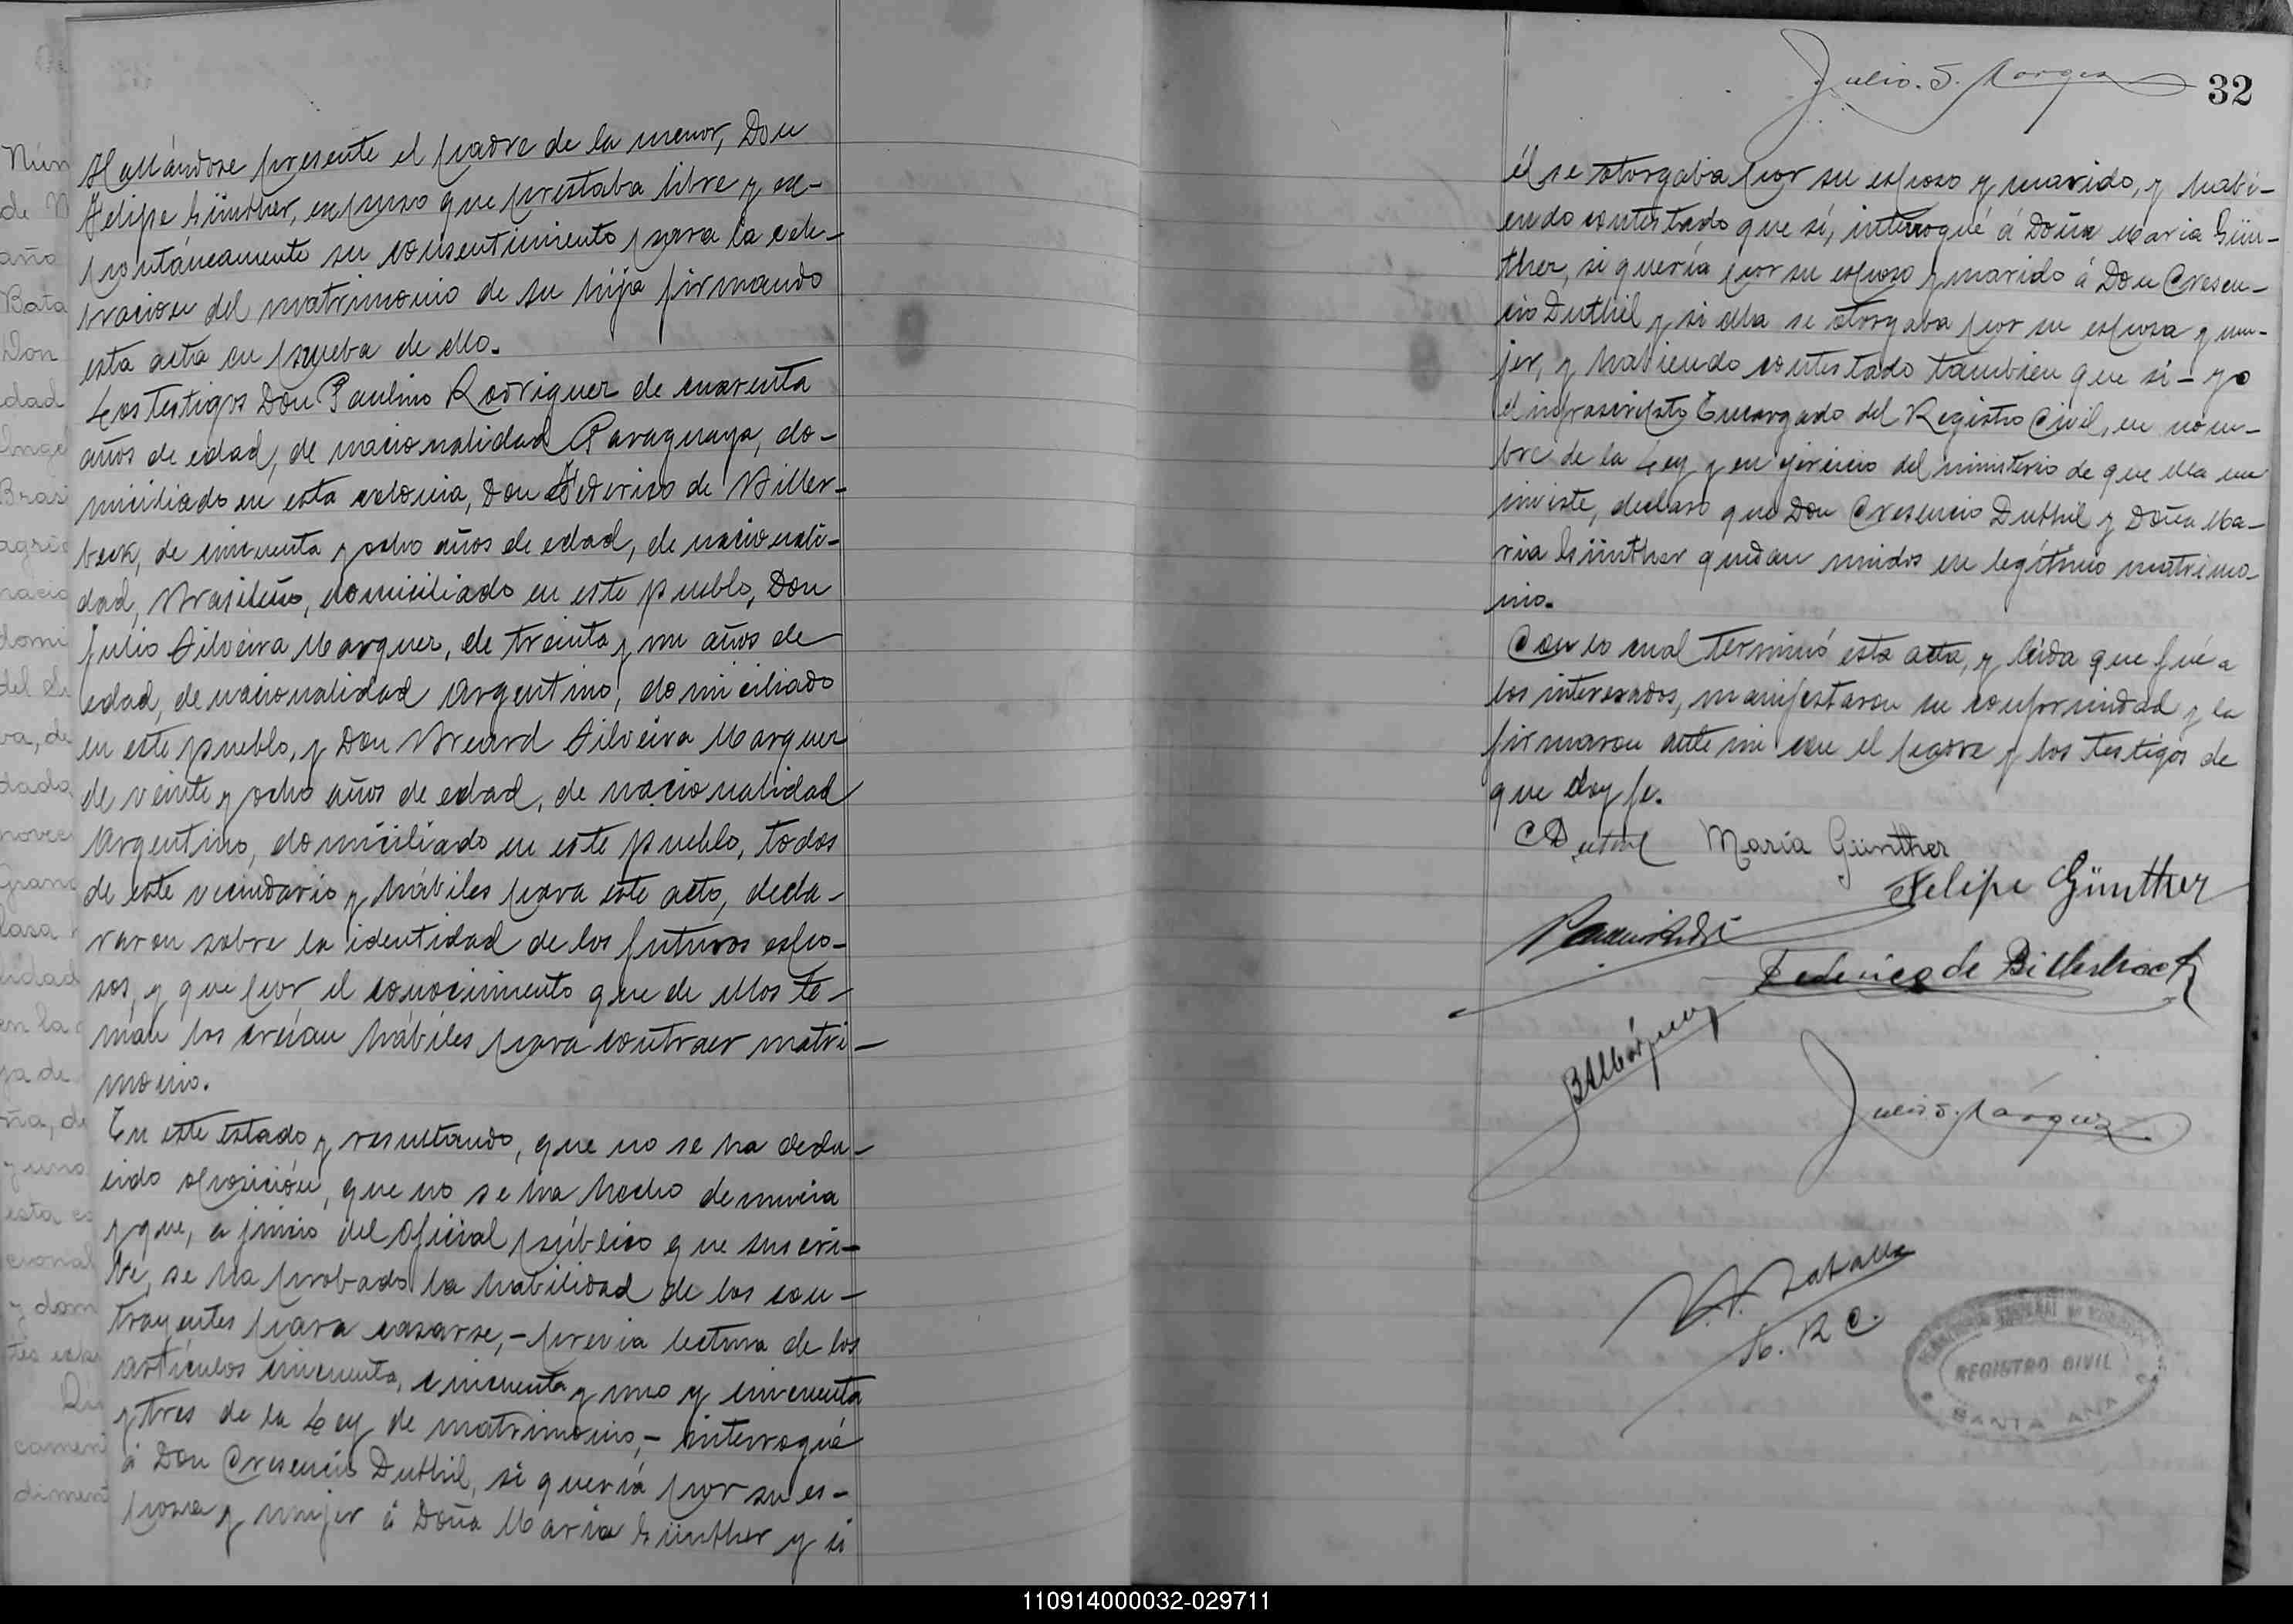 Hallándose presente el padre de la menor, Don
Felipe Günther, expuso que prestaba libre y es-
pontáneamente su consentimiento para la cele-
bracion del matrimonio de su hija firmando
esta acta en prueba de ello.
Los testigos Don Paulino Rodriguez de cuarenta
años de edad, de nacionalidad Paraguaya, do-
miciliado en esta colonia, Don Federico de Biller-
beck, de cincuenta y ocho años de edad, de nacionali-
dad, Brasileño, domiciliado en este pueblo, Don
Julio Silveira Marquez, de treinta y un años de
edad, de nacionalidad Argentino, domiciliado
en este pueblo, y Don Breard Silveira Marquez
de veinte y ocho años de edad, de nacionalidad
Argentino, domiciliado en este pueblo, todos
de este vecindario y hábiles para este acto, decla-
raron sobre la identidad de los futuros espo-
sos, y que por el conocimiento que de ellos te-
nian los creían hábiles para contraer matri-
monio.
En este estado y resultando, que no se ha dedu-
cido oposición, que no se ha hecho denuncia
y que, a juicio del Oficial público que suscri-
be, se ha probado la habilidad de los con-
trayentes para casarse,- previa lectura de los
artículos cincuenta, cincuenta y uno y cincuenta
y tres de la Ley de matrimonio,- interrogué
á Don Cresencio Duthil, si quería por su es-
posa y mujer á Doña Maria Günther y si
Julio. S. Marquez
32
él se otorgaba por su esposo y marido, y habi-
endo contestado que sí, interrogué á Doña Maria Gün-
ther, si quería por su esposo y marido á Don Cresen-
cio Duthil y si ella se otorgaba por su esposa y mu-
jer, y habiendo contestado tambien que si- yo
el infrascripto Encargado del Registro Civil, en nom-
bre de la Ley y en ejercicio del ministerio de que ella me
inviste, declaro que Don Cresencio Duthil y Doña Ma-
ria Günther quedan unidos en legítimo matrimo-
nio.
Con lo cual terminó esta acta, y leída que fué a
los interesados, manifestaron su conformidad y la
firmaron ante mi con el padre y los testigos de
que doy fe.
CDuthil María Günther
Felipe Günther
Federico de Billerbeck
BSMárquez
Julio S. Márquez
REGISTRO CIVIL
SANTA ANA
110914000032-029711